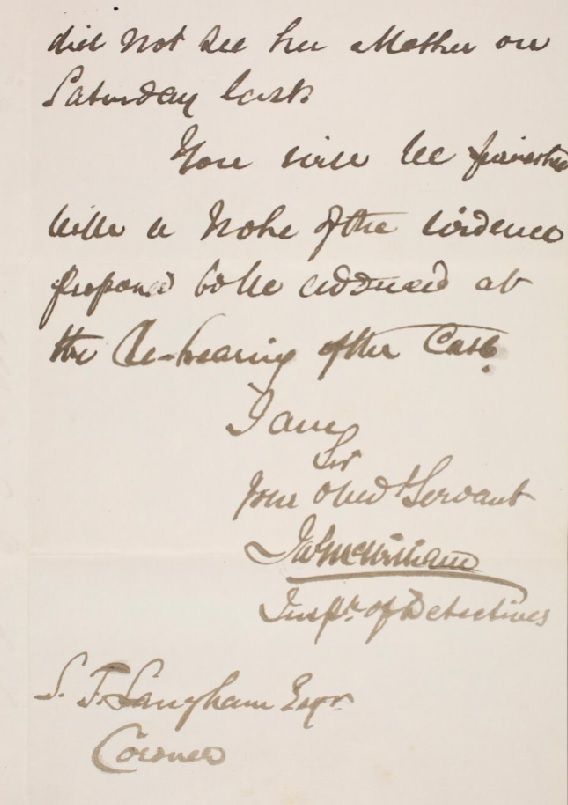 did not see her Mother on
Saturday last.
You will be furnished
with a Note of the evidence
proposed to be adduced at
the Re-hearing of the Case.
I am
Sir
Your Obed.t Servant
Jas McWilliam
Inspr. of Detectives
S. F. Langham Esqr.
Coroner